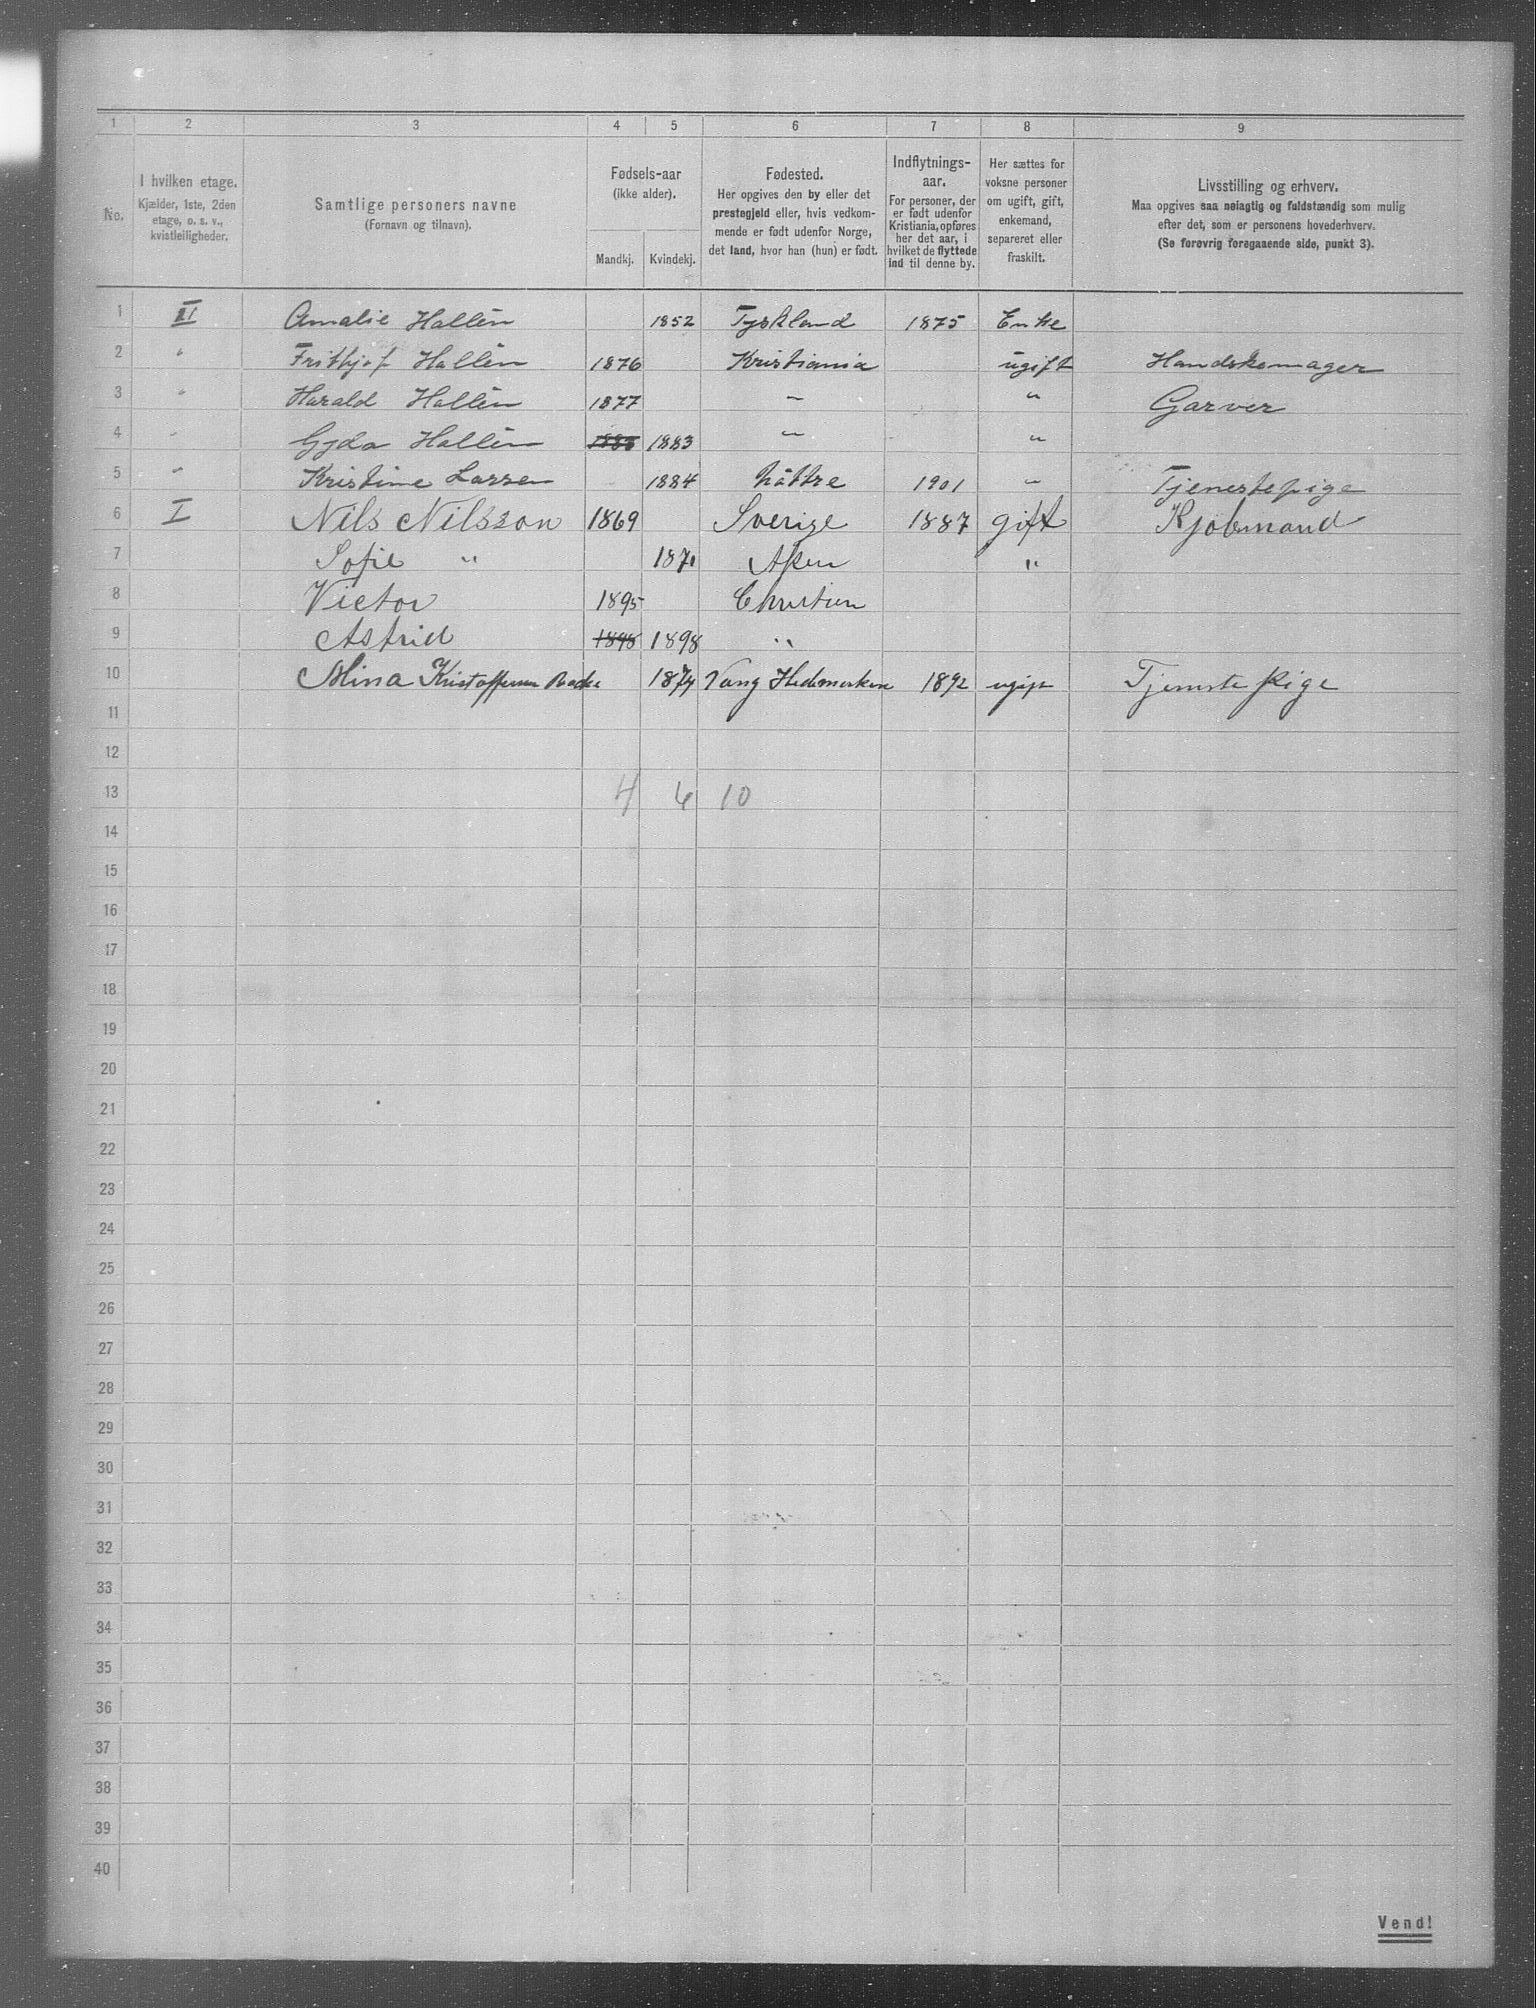 1 2 3 4 5 6 7 8 9
No.
I hvilken etage.
Kjælder, 1ste, 2den
etage, o. s. v.,
kvistleiligheder.
Samtlige personers navne
(Fornavn og tilnavn).
Fødsels-aar
(ikke alder).
Mandkj. Kvindekj.
Fødested.
Her opgives den by eller det
prestegjeld eller, hvis vedkom-
mende er født udenfor Norge,
det land, hvor han (hun) er født.
Indflytnings-
aar.
For personer, der
er født udenfor
Kristiania, opføres
her det aar, i
hvilket de flyttede
ind til denne by.
Her sættes for
voksne personer
om ugift, gift,
enkemand,
separeret eller
fraskilt.
Livsstilling og erhverv.
Maa opgives saa nøiagtig og fuldstændig som mulig
efter det, som er personens hovederhverv.
(Se forøvrig foregaaende side, punkt 3).
1 II Amalie Hallèn 1852 Tyskland 1875 Enke
2 " Frithjof Hallèn 1876 Kristiania ugift Handskemager
3 " Harald Hallèn 1877 " " Garver
4 " Gyda Hallèn 1883 1883 " "
5 " Kristine Larsen 1884 1901 " Tjenestepige
6 I Nils Nilsson 1869 Sverige 1887 gift Kjøbmand
7 Sofie " 1871 "
8 Victor 1895
9 Astrid 1898 1898 "
10 Mina Kristoffersen 1874 Vang Hedemarken 1892 ugift Tjeneste pige
11
12
13 4 6 10
14
15
16
17
18
19
20
21
22
23
24
25
26
27
28
29
30
31
32
33
34
35
36
37
38
39
40
Vend!